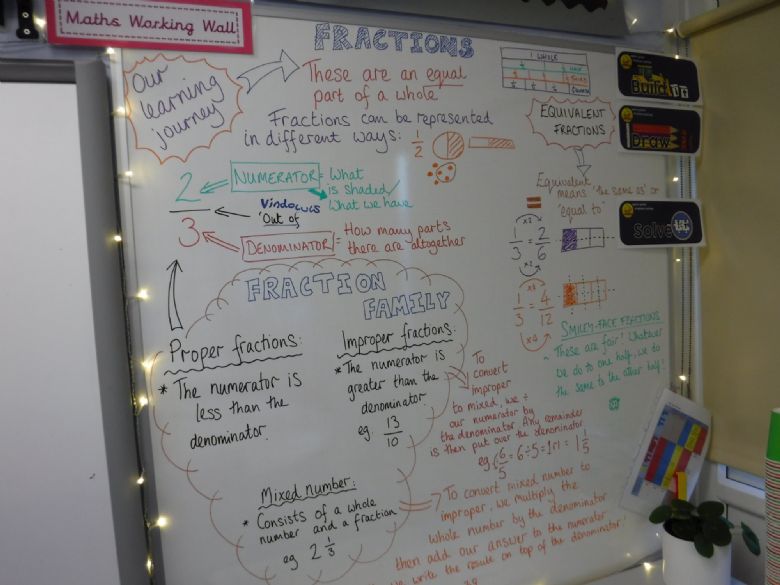 Maths Working Wall
FRACTIONS
Our
learning
journey
These are an equal
part of a whole
Fractions can be represented
in different ways: 1/2
1 WHOLE
EQUIVALENT
FRACTIONS
Build it
Draw
Solve
Equivalent
means "the same as" or
"equal to"
=
x2
1/3 = 2/6
x2
x4
1/3 = 4/12
x4
2/3
NUMERATOR = What
is shaded/
what we have
Vindows
'Out of'
DENOMINATOR = How many parts
there are altogether
FRACTION
FAMILY
Proper fractions:
* The numerator is
less than the
denominator
Improper fractions:
* The numerator is
greater than the
denominator
eg. 13/10
Mixed number:
* Consists of a whole
number and a fraction
eg 2 1/3
SMILEY-FACE FRACTIONS
* These are fair! Whatever
we do to one half, we do
the same to the other half!
To
convert
improper
to mixed, we ÷
our numerator by
the denominator. Any remainder
is then put over the denominator
eg. 6/5 = 6÷5 = 1r1 = 1 1/5
To convert mixed number to
improper, we multiply the
whole number by the denominator
then add our answer to the numerator.
we write the result on top of the denominator!